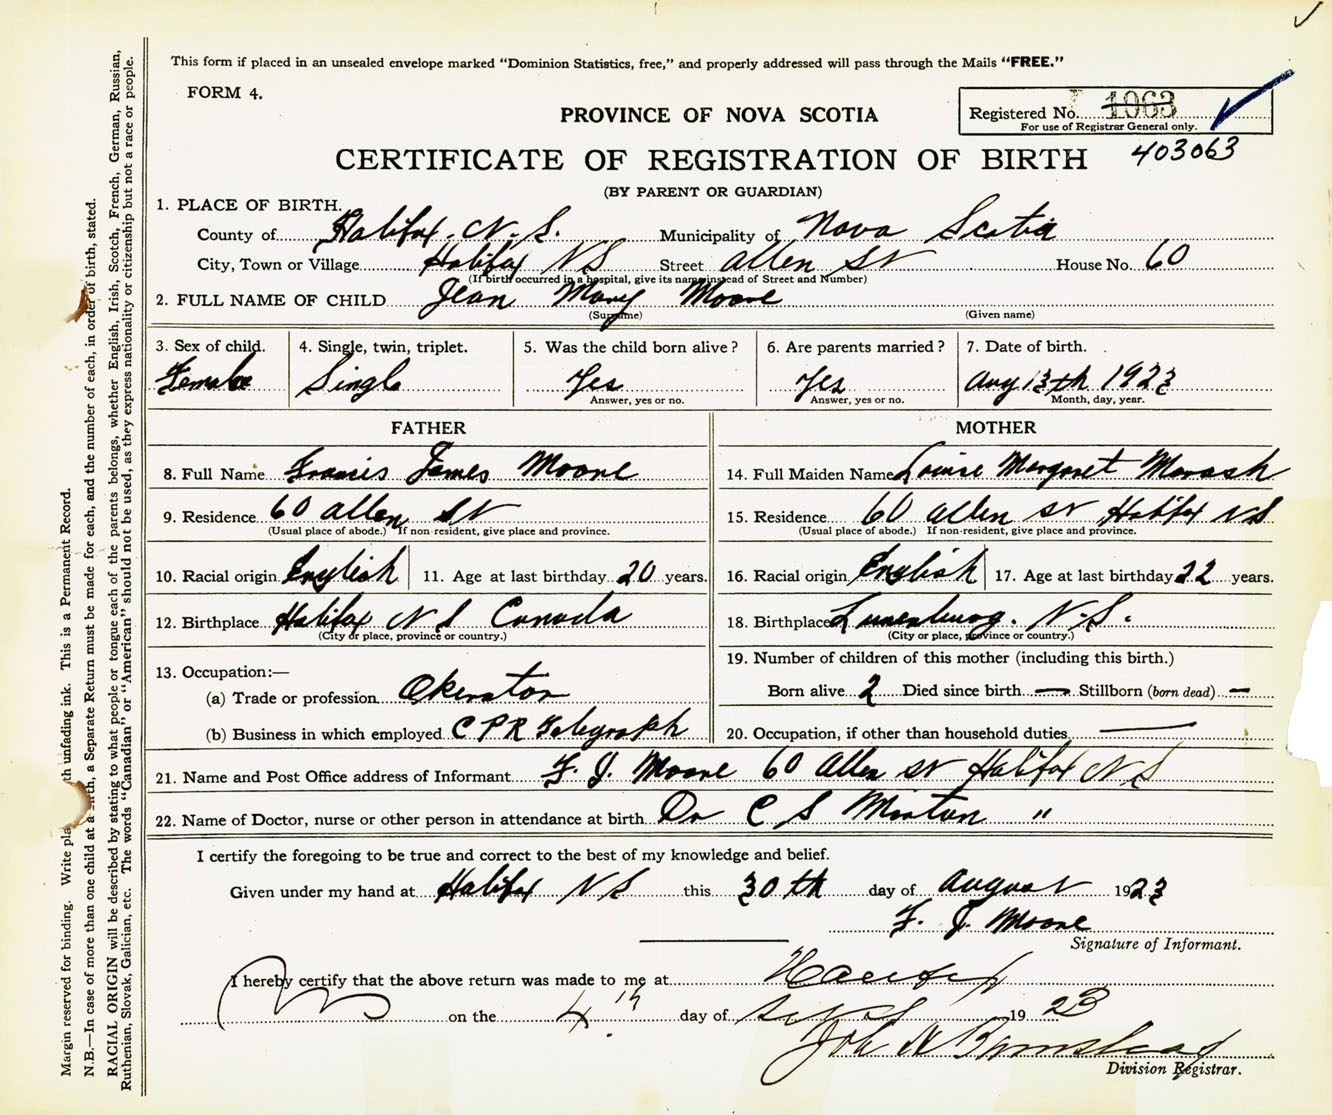 This form if placed in an unsealed envelope marked "Dominion Statistics, free," and properly addressed will pass through the Mails "FREE."
FORM 4.
PROVINCE OF NOVA SCOTIA
Registered No. 1063
For use of Registrar General only.
403063
CERTIFICATE OF REGISTRATION OF BIRTH
(BY PARENT OR GUARDIAN)
1. PLACE OF BIRTH.
County of Halifax. N. S. Municipality of Nova Scotia
City, Town or Village Halifax NS Street Allen St House No. 60
(If birth occurred in a hospital, give its name instead of Street and Number)
2. FULL NAME OF CHILD Jean Mary Moore
(Surname) (Given name)
3. Sex of child. 4. Single, twin, triplet. 5. Was the child born alive? 6. Are parents married? 7. Date of birth.
Female Single Yes Yes Aug 13th 1923
Answer, yes or no. Answer, yes or no. Month, day, year.
FATHER MOTHER
8. Full Name Francis James Moore 14. Full Maiden Name Louise Margaret Marash
9. Residence 60 Allen St 15. Residence 60 Allen St Halifax NS
(Usual place of abode.) If non-resident, give place and province. (Usual place of abode.) If non-resident, give place and province.
10. Racial origin English 11. Age at last birthday 20 years. 16. Racial origin English 17. Age at last birthday 22 years.
12. Birthplace Halifax N S Canada 18. Birthplace Lunenburg. N.S.
(City or place, province or country.) (City or place, province or country.)
13. Occupation:— 19. Number of children of this mother (including this birth.)
(a) Trade or profession Okerator Born alive 2 Died since birth — Stillborn (born dead) —
(b) Business in which employed C P R Telegraph 20. Occupation, if other than household duties —
21. Name and Post Office address of Informant F. J. Moore 60 Allen St Halifax N S
22. Name of Doctor, nurse or other person in attendance at birth Dr C S Morton "
I certify the foregoing to be true and correct to the best of my knowledge and belief.
Given under my hand at Halifax NS this 30th day of August 1923
F. J. Moore
Signature of Informant.
I hereby certify that the above return was made to me at Halifax
on the 4th day of Sept 1923
Division Registrar.
Margin reserved for binding. Write pla th unfading ink. This is a Permanent Record.
N.B.—In case of more than one child at a birth, a Separate Return must be made for each, and the number of each, in order of birth, stated.
RACIAL ORIGIN will be described by stating to what people or tongue each of the parents belongs, whether English, Irish, Scotch, French, German, Russian,
Ruthenian, Slovak, Galician, etc. The words "Canadian" or "American" should not be used, as they express nationality or citizenship but not a race or people.